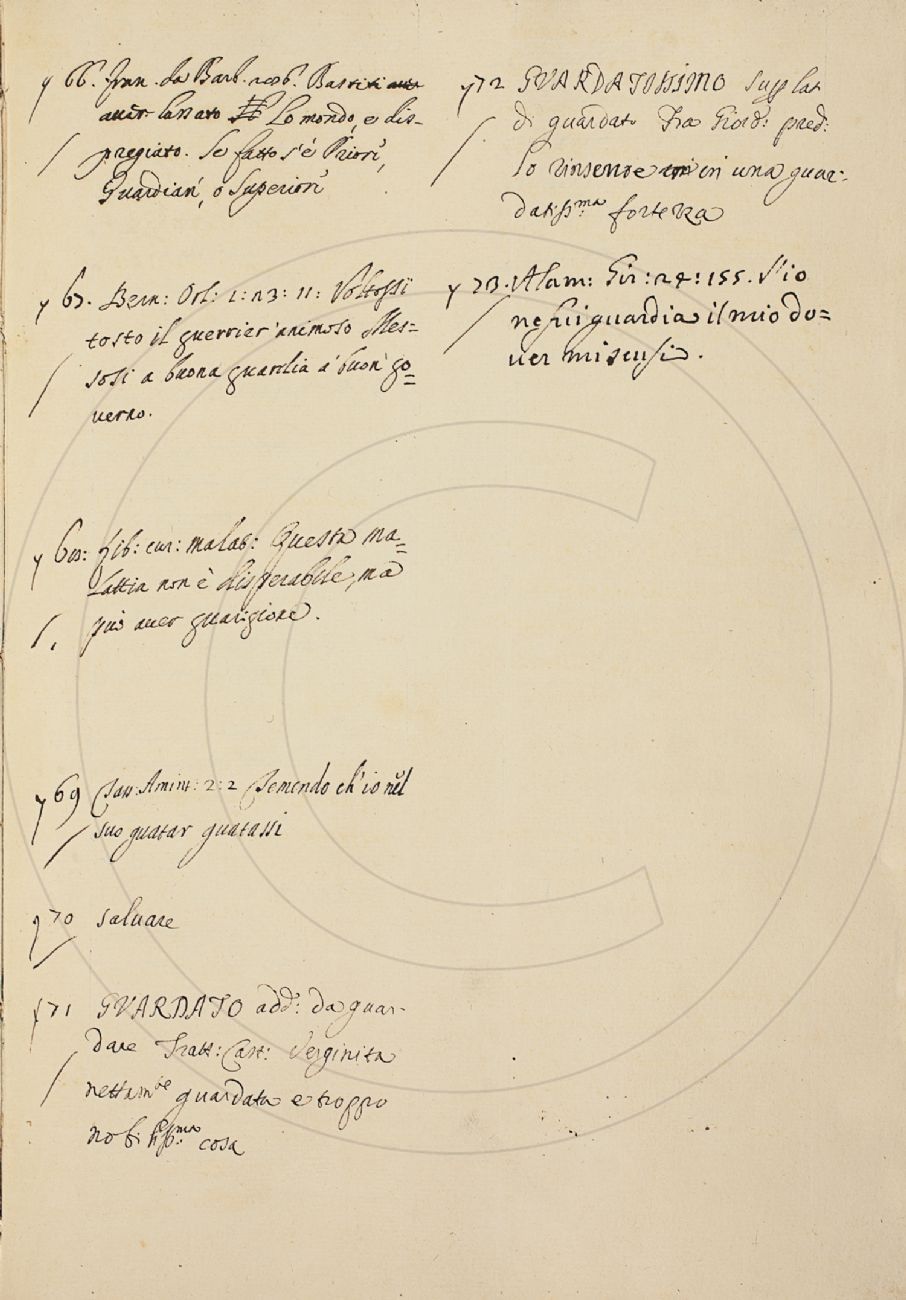 66. Fran. da Barb. 208. Bastiti
aver lassato Lo mondo, e dis-
pregiato. Se fatto s'è Priori,
Guardian, o Superiori
67. Bern: Orl: 1: 23: 11: Voltossi
tosto il guerrier' animoso Mes=
sosi a buona guardia a' buon' go=
verno.
68: Lib: cur: malat: Questa ma=
lattia non è disperabile, ma
può aver guarigione.
69 Tass: Amint: 2: 2 Temendo ch'io nel
suo guatar guatassi
70 salvare
71 GVARDATO add: da guar-
dare Tratt: Cast: Verginita
nettam.te guardata e troppo
nobiliss.ma cosa
72 GVARDATISSIMO Superlat
di guardato Fra Giord: pred:
lo rinserroe in una guar-
datiss.ma fortezza
73. Alam: Gir: 24: 155. S'io
ne fui guardia il mio do=
ver mi scusi.